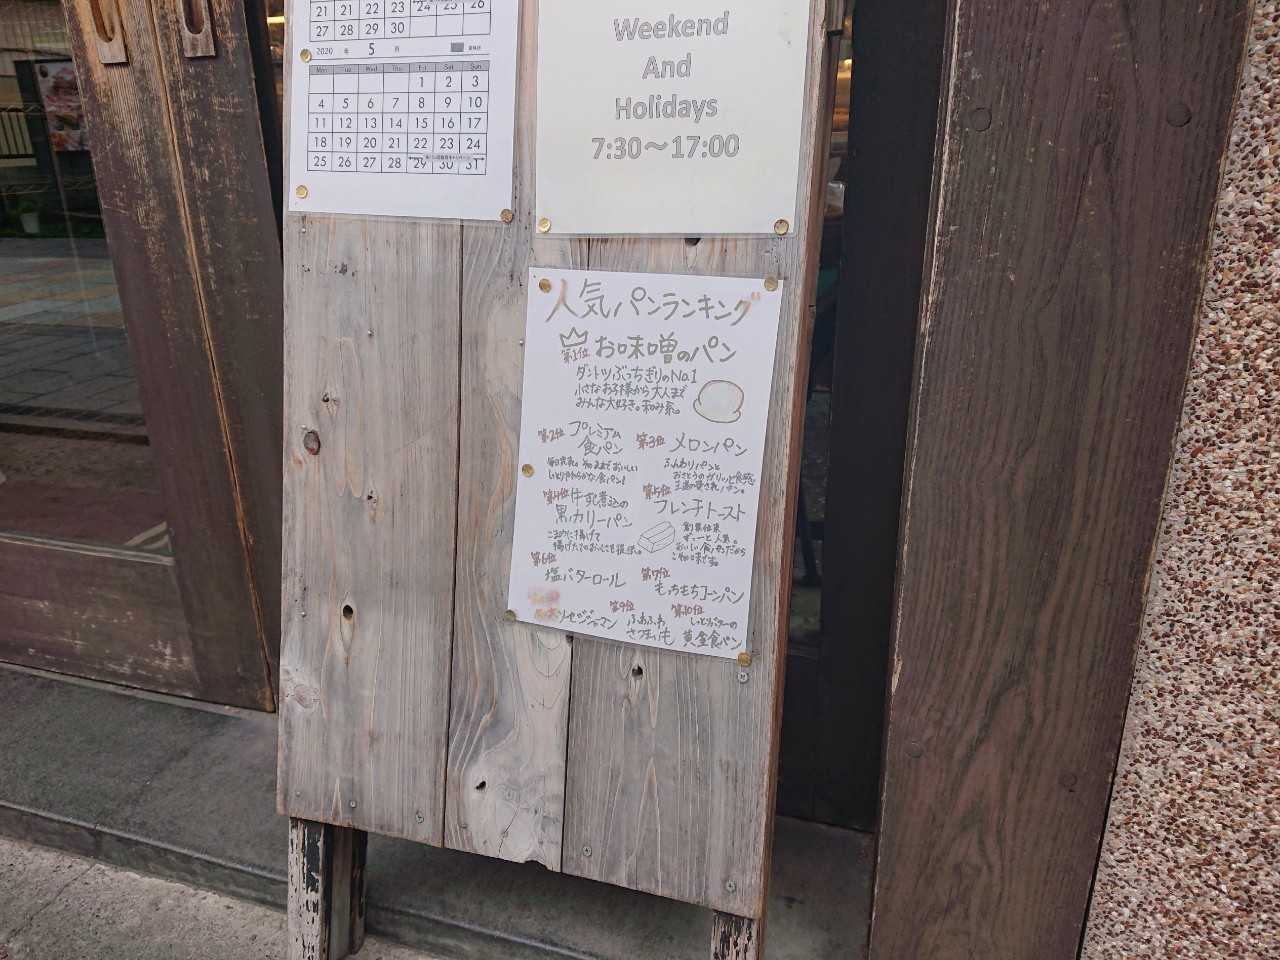 21 21 22 23 24 25 26
27 28 29 30
2020 年 5 月 定休日
Mon Tue Wed Thu Fri Sat Sun
1 2 3
4 5 6 7 8 9 10
11 12 13 14 15 16 17
18 19 20 21 22 23 24
25 26 27 28 29 30 31
Weekend
And
Holidays
7:30～17:00
人気パンランキング
第1位 お味噌のパン
ダントツぶっちぎりのNo.1
小さなお子様から大人まで
みんな大好き。和み系。
第2位 プレミアム
食パン
毎日完売。そのままでおいしい
しっとりやわらかな食パン!
第3位 メロンパン
ふんわりパンと
おさとうのガリッと食感
王道の愛されパン。
第4位 牛すじ煮込の
黒カリーパン
こまめに揚げて
揚げたてのおいしさを提供。
第5位
フレンチトースト
創業以来
ずっーと人気。
おいしい食パンだから
こその味です。
第6位
塩バターロール
第7位
もっちもちコーンパン
ソセジジャマン
第9位
ふわふわ
さつまいも
第10位
しっとりバターの
黄金食パン